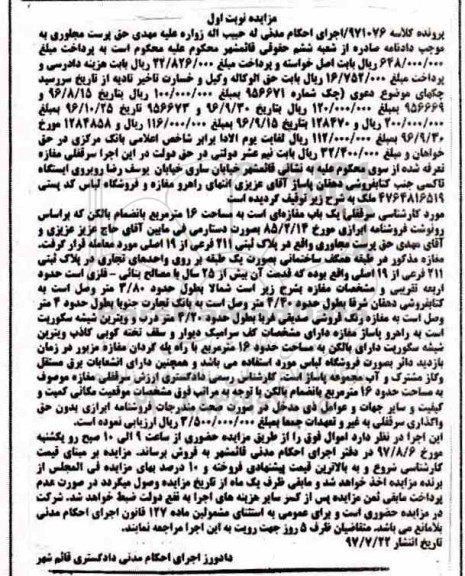 مزایده نوبت اول
پرونده کلاسه ۹۷۱۰۷۶/اجرای احکام مدنی له حبیب اله زواره علیه مهدی حق پرست مجلوری به
موجب دادنامه صادره از شعبه ششم حقوقی قائمشهر محکوم علیه محکوم است به پرداخت مبلغ
۶۴۸/۰۰۰/۰۰۰ ریال بابت اصل خواسته و پرداخت مبلغ ۲۲/۸۲۶/۰۰۰ ریال بابت هزینه دادرسی و
پرداخت مبلغ ۱۶/۷۵۲/۰۰۰ ریال بابت حق الوکاله وکیل و خسارت تاخیر تادیه از تاریخ سررسید
چکهای موضوع دعوی (چک شماره ۹۵۶۶۷۱ بمبلغ ۱۰۰/۰۰۰/۰۰۰ ریال بتاریخ ۹۶/۸/۱۵ و
۹۵۶۶۶۹ بمبلغ ۱۲۰/۰۰۰/۰۰۰ ریال بتاریخ ۹۶/۹/۳۰ و ۹۵۶۶۷۳ تاریخ ۹۶/۱۰/۲۵ بمبلغ
۲۰۰/۰۰۰/۰۰۰ ریال و ۱۲۸۴۷۰ بتاریخ ۹۶/۹/۱۵ بمبلغ ۱۱۶/۰۰۰/۰۰۰ ریال و ۱۲۸۴۸۵۸ مورخ
۹۶/۹/۳۰ بمبلغ ۱۱۲/۰۰۰/۰۰۰ ریال لغایت یوم الادا برابر شاخص اعلامی بانک مرکزی در حق
خواهان و مبلغ ۳۲/۴۰۰/۰۰۰ ریال بابت نیم عشر دولتی در حق دولت در این اجرا سرقفلی مغازه
تعرفه شده از سوی محکوم علیه به نشانی قائمشهر خیابان ساری خیابان یوسف رضا روبروی ایستگاه
تاکسی جنب کتابفروشی دهقان پاساژ آقای عزیزی انتهای راهرو مغازه و فروشگاه لباس کد پستی
۴۷۶۴۸۱۶۵۱۹ ملک به شرح زیر توقیف گردیده است
مورد کارشناسی سرقفلی یک باب مغازه‌ای است به مساحت ۱۶ مترمربع بانضمام بالکن که براساس
رونوشت فروشنامه ابرازی مورخ ۸۵/۲/۱۴ بصورت دستارمی فی مابین آقای حاج عزیز عزیزی و
آقای مهدی حق پرست مجاوری واقع در پلاک ثبتی ۲۱۱ فرعی از ۱۹ اصلی مورد معامله قرار گرفت.
مغازه مذکور در طبقه همکف ساختمانی بصورت یک طبقه بر روی واحدهای تجاری در پلاک ثبتی
۲۱۱ فرعی از ۱۹ اصلی واقع بوده که قدمت آن بیش از ۲۵ سال با مصالح بنائی - فلزی است حدود
اربعه تقریبی و مشخصات مغازه بشرح زیر است شمالا بطول حدود ۳/۸۰ متر وصل است به
کتابفروشی دهقان شرقا بطول حدود ۴/۲۰ متر وصل است به بانک تجارت جنوبا بطول حدود ۴ متر
وصل است به مغازه رنگ فروشی صدیقی غربا بطول حدود ۴/۲۰ متر درب و ویترین شیشه سکوریت
است به راهرو پاساژ مغازه دارای مشخصات کف سرامیک دیوار و سقف تخته کوبی کاذب ویترین
شیشه سکوریت دارای بالکن به مساحت حدود ۱۶ مترمربع با راه پله گردان مغازه مزبور در زمان
بازدید دائر بصورت فروشگاه لباس مورد استفاده می باشد و همچنین دارای انشعابات برق مستقل
وگاز مشترک و آب مجموعه پاساژ است. کارشناس رسمی دادگستری ارزش سرقفلی مغازه موصوف
به مساحت حدود ۱۶ مترمربع بانضمام بالکن با اوصاف فوق مشخصات موقعیت مکانی کمیت و
کیفیت و سایر جهات و عوامل ذی مدخل در صورت صحت مندرجات فروشنامه ابرازی بدون حق
واگذاری سرقفلی به غیر و تعهدات جمعا بمبلغ ۳/۵۰۰/۰۰۰/۰۰۰ ریال ارزیابی نموده است.
این اجرا در نظر دارد اموال فوق را از طریق مزایده حضوری از ساعت ۹ الی ۱۰ صبح رو یکشنبه
مورخ ۹۷/۸/۶ در دفتر اجرای احکام مدنی قائمشهر به فروش برساند. مزایده بر مبنای قیمت
کارشناسی شروع و به بالاترین قیمت پیشنهادی فروخته و ۱۰ درصد بهای مزایده فی المجلس از
برنده مزایده اخذ خواهد شد و مابقی ظرف یک ماه از تاریخ مزایده وصول میگردد در صورت عدم
پرداخت مابقی ثمن مزایده پس از کسر سایر هزینه های اجرا به نفع دولت ضبط خواهد شد. شرکت
در مزایده حضوری است و برای عمومی به استثنای مشمولین ماده ۱۲۷ قانون اجرای احکام مدنی
بلامانع می باشد. متقاضیان ظرف ۵ روز جهت رویت به این اجرا مراجعه نمایند.
تاریخ انتشار ۹۷/۷/۲۲
دادورز اجرای احکام مدنی دادگستری قائم شهر